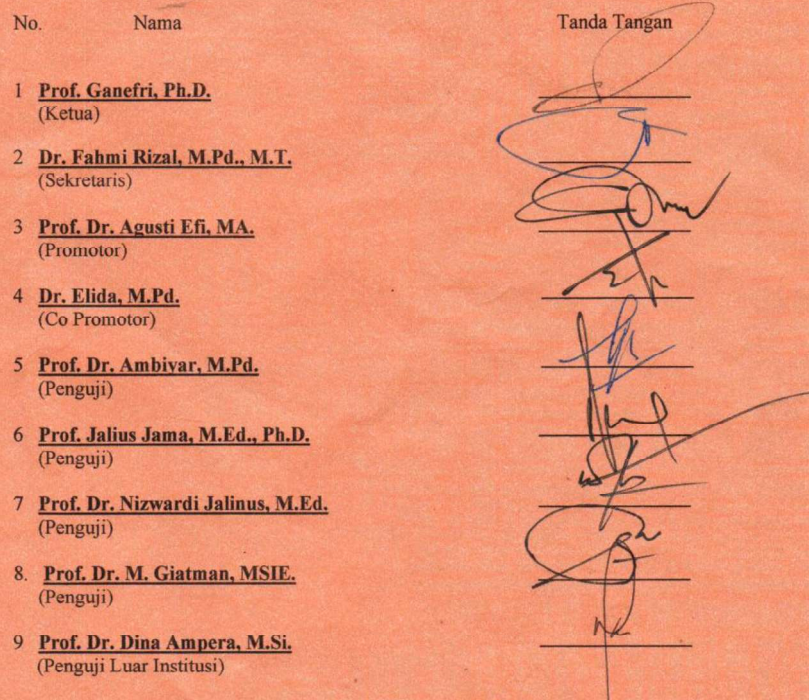 No. Nama Tanda Tangan
1 Prof. Ganefri, Ph.D.
(Ketua)
2 Dr. Fahmi Rizal, M.Pd., M.T.
(Sekretaris)
3 Prof. Dr. Agusti Efi, MA.
(Promotor)
4 Dr. Elida, M.Pd.
(Co Promotor)
5 Prof. Dr. Ambiyar, M.Pd.
(Penguji)
6 Prof. Jalius Jama, M.Ed., Ph.D.
(Penguji)
7 Prof. Dr. Nizwardi Jalinus, M.Ed.
(Penguji)
8. Prof. Dr. M. Giatman, MSIE.
(Penguji)
9 Prof. Dr. Dina Ampera, M.Si.
(Penguji Luar Institusi)